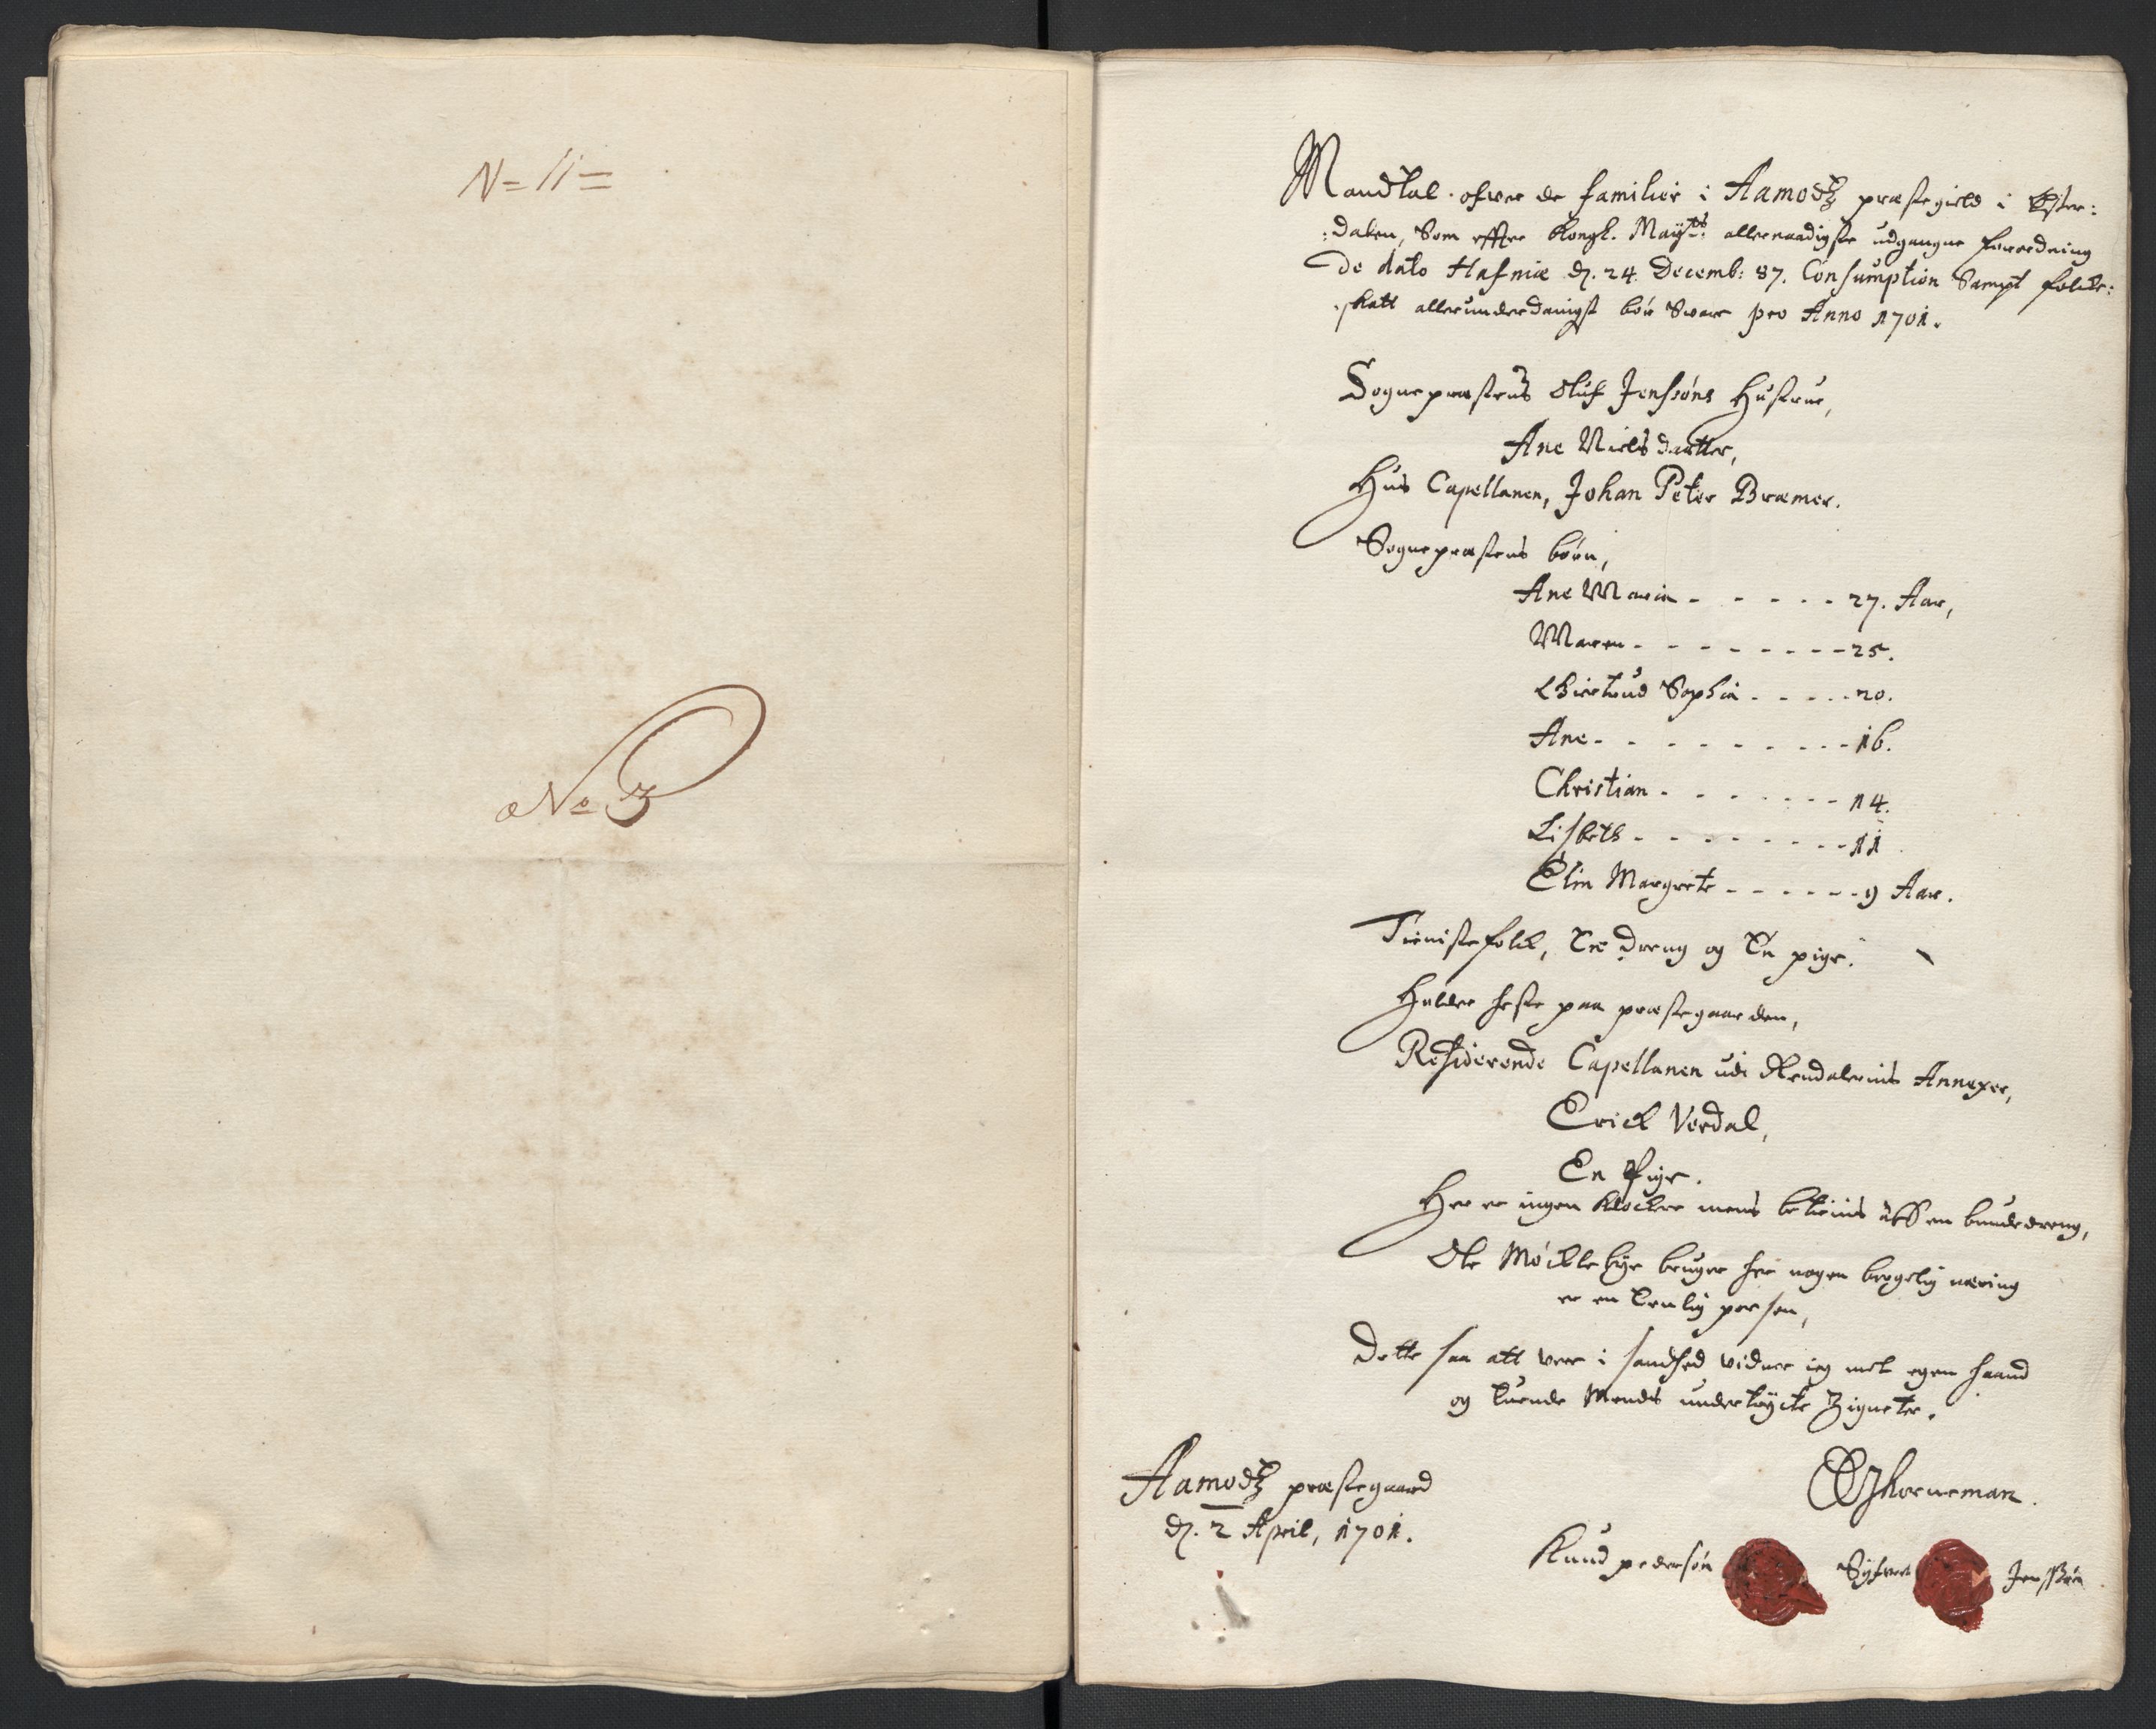 N= 11=
No 3
Mandtal ofwer de familier i Aamodtz præstegield i Øster:
:dalen, Som effter Kongl. Maÿts: allernaadigste udgangne forordning
De dato Hafniæ d. 24 Decemb: 87. Consumption Sampt folcke:
:skatt allerunderdanigst bør Svare pro Anno 1701.
Sognepræstens Oluf Jenssøns Hustrue,
Ane Nielsdaatter,
Hus Capellanen, Johan Peter Bræmer.
Sognepræstens børn,
Ane Maria - - - - - 27. Aar,
Maren - - - - - - - - 25.
Sophia - - - - 20.
Ane - - - - - - - - 16.
Christian - - - - - - - 14.
Lisbeth - - - - - - - 11
Elin Margrete - - - - - - 9 Aar.
Tienistefolck, En Dreng og En pige.
Holder heste paa præstegaarden,
Residerende Capellanen udi Rendalernis Annexer,
Erick Verdal,
En Pige.
Her er ingen Klocker mens betienis aff en bundedreng,
Ole Møcklebye bruger her nogen borgelig næring
er en Enlig person,
Dette saa att vere i sandhed vidner ieg med egen haand
og tuende Mends undertrÿckte Zigneter.
Aamodtz præstegaard
d. 2 April, 1701.
OJKorneman.
Knud pedersøn Syfwer Jenssøn